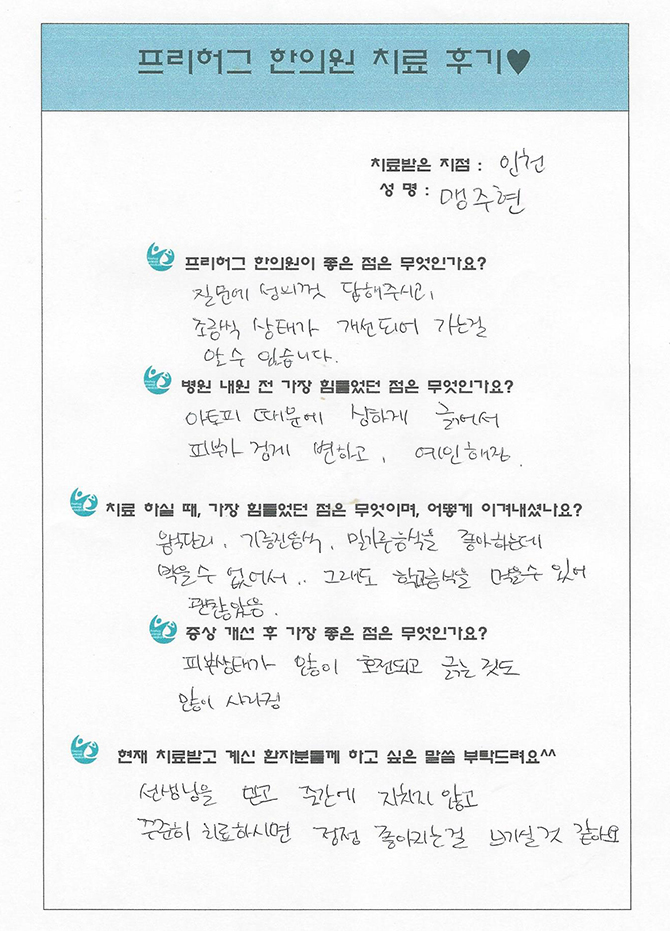 프리허그 한의원 치료 후기♥
치료받은 지점 : 인천
성 명 : 맹주현
프리허그 한의원이 좋은 점은 무엇인가요?
질문에 성의껏 답해주시고,
조금씩 상태가 개선되어 가는걸
알 수 있습니다.
병원 내원 전 가장 힘들었던 점은 무엇인가요?
아토피 때문에 심하게 긁어서
피부가 검게 변하고, 예민해짐.
치료 하실 때, 가장 힘들었던 점은 무엇이며, 어떻게 이겨내셨나요?
기름진음식, 밀가루음식을 좋아하는데
먹을수 없어서.. 그래도 학교급식을 먹을수 있어
괜찮았음.
증상 개선 후 가장 좋은 점은 무엇인가요?
피부상태가 많이 호전되고 긁는 것도
많이 사라짐
현재 치료받고 계신 환자분들께 하고 싶은 말씀 부탁드려요^^
선생님을 믿고 중간에 지치지 않고
꾸준히 치료하시면 점점 좋아지는걸 느끼실것 같아요